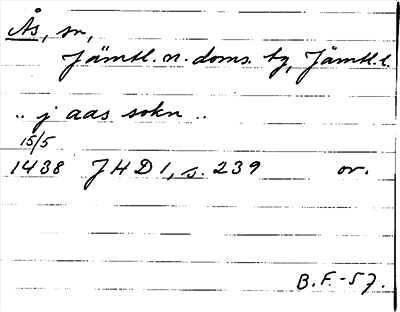 Ås, sn,
Jämtl. n. doms. tg, Jämtl. l.
.. j aas sokn ..
15/5
1438 JHD 1, s. 239 or.
B.F.-57.